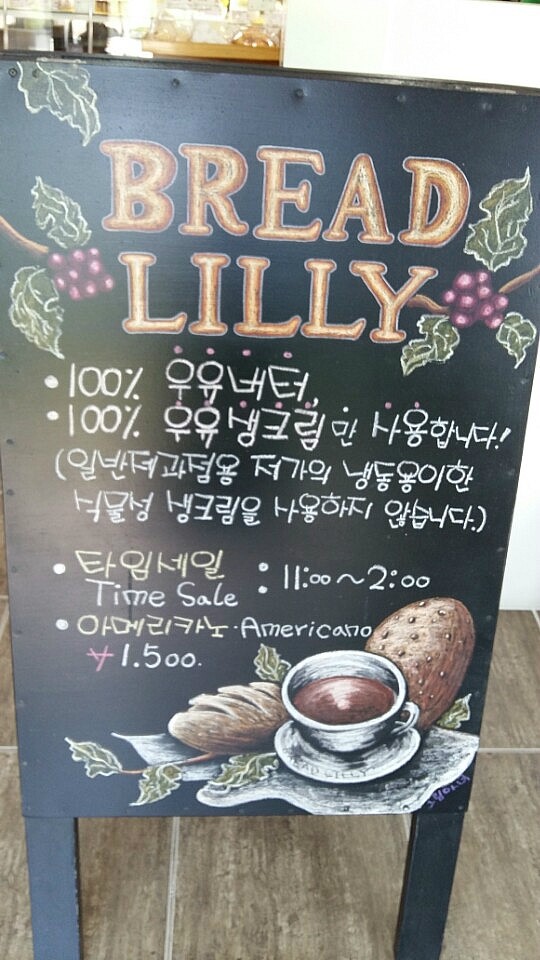 BREAD
LILLY
• 100% 우유버터,
• 100% 우유생크림만 사용합니다!
(일반제과점용 저가의 냉동용이한
식물성 생크림을 사용하지 않습니다.)
• 타임세일 : 11:00~2:00
Time Sale
• 아메리카노·Americano
₩1.500.